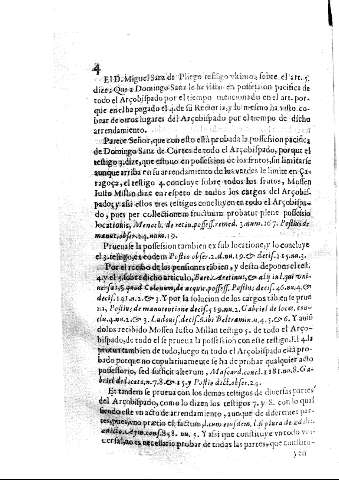 4
El D. Miguel Sanz de Pliego testigo vltimo, sobre el art. 5.
dize, Que a Domingo Sanz le ha visto en possession pacifica de
todo el Arçobispado por el tiempo mencionado en el art. por-
que en el ha pagado el 4. de su Rectoria, y lo mesmo ha visto co-
brar de otros lugares del Arçobispado por el tiempo de dicho
arrendamiento.
Parece Señor, que con esto está probada la possession pacifica
de Domingo Sanz de Cortes de todo el Arçobispado, porque el
testigo 3. dize, que estuuo en possession de los frutos, sin limitarle
aunque arriba en su arrendamiento de las verdes le limite en Ça-
ragoça, el testigo 4. concluye sobre todos los frutos, Mossen
Iusto Millan en respeto de todos los cargos del Arçobis-
pado, y assi ellos tres testigos concluyen en todo el Arçobispa-
do, pues per collectionem fructuum probatur plene possessio
locationis, Menoch. de retin. possess. remed. 3. num. 267. Postius de
manut. obser. 24. num. 19.
Prueuase la possession tambien ex sub locatione, y lo concluye
el 3. testigo, ex eodem Postio obser. 2. d. nu. 19. & decis. 15. nu. 3.
Por el recibo de las pensiones tambien, y desta deponen el test.
4. y 5. sobre dicho articulo,
possess. decis. 46. nu. 4. &
decis. 141. n. 2. & 3. Y por la solucion de los cargos tambien se prue
ua, Postius de manutentione decis. 59. nu. 2. Gabriel de locat.
4. nu. 2. & 3. Y auien
dolos recibido Mossen Iusto Millan testigo 5. de todo el Arço-
bispado, de todo el se prueua la possession con este testigo. El 4. la
prueua tambien de todo, luego en todo el Arçobispado está pro-
bado porque no copulatiuamente se ha de probar qualquier acto
possessorio, sed sufficit alterum, Mascard. concl. 1181. nu. 8. Ga-
briel de locat. n. 7. 8. & 15. y Postio dict. obser. 24.
Et tandem se prueua con los demas testigos de diuersas partes
del Arçobispado, como lo dizen los testigos 7. y 8. con lo qual
siendo este vn acto de arrendamiento, aunque de diferentes par-
tes, pues vno
848. nu. 5. Y assi que concluye en todo vni-
uersal, no es necessario probar de todas las partes, que constitu-
yen